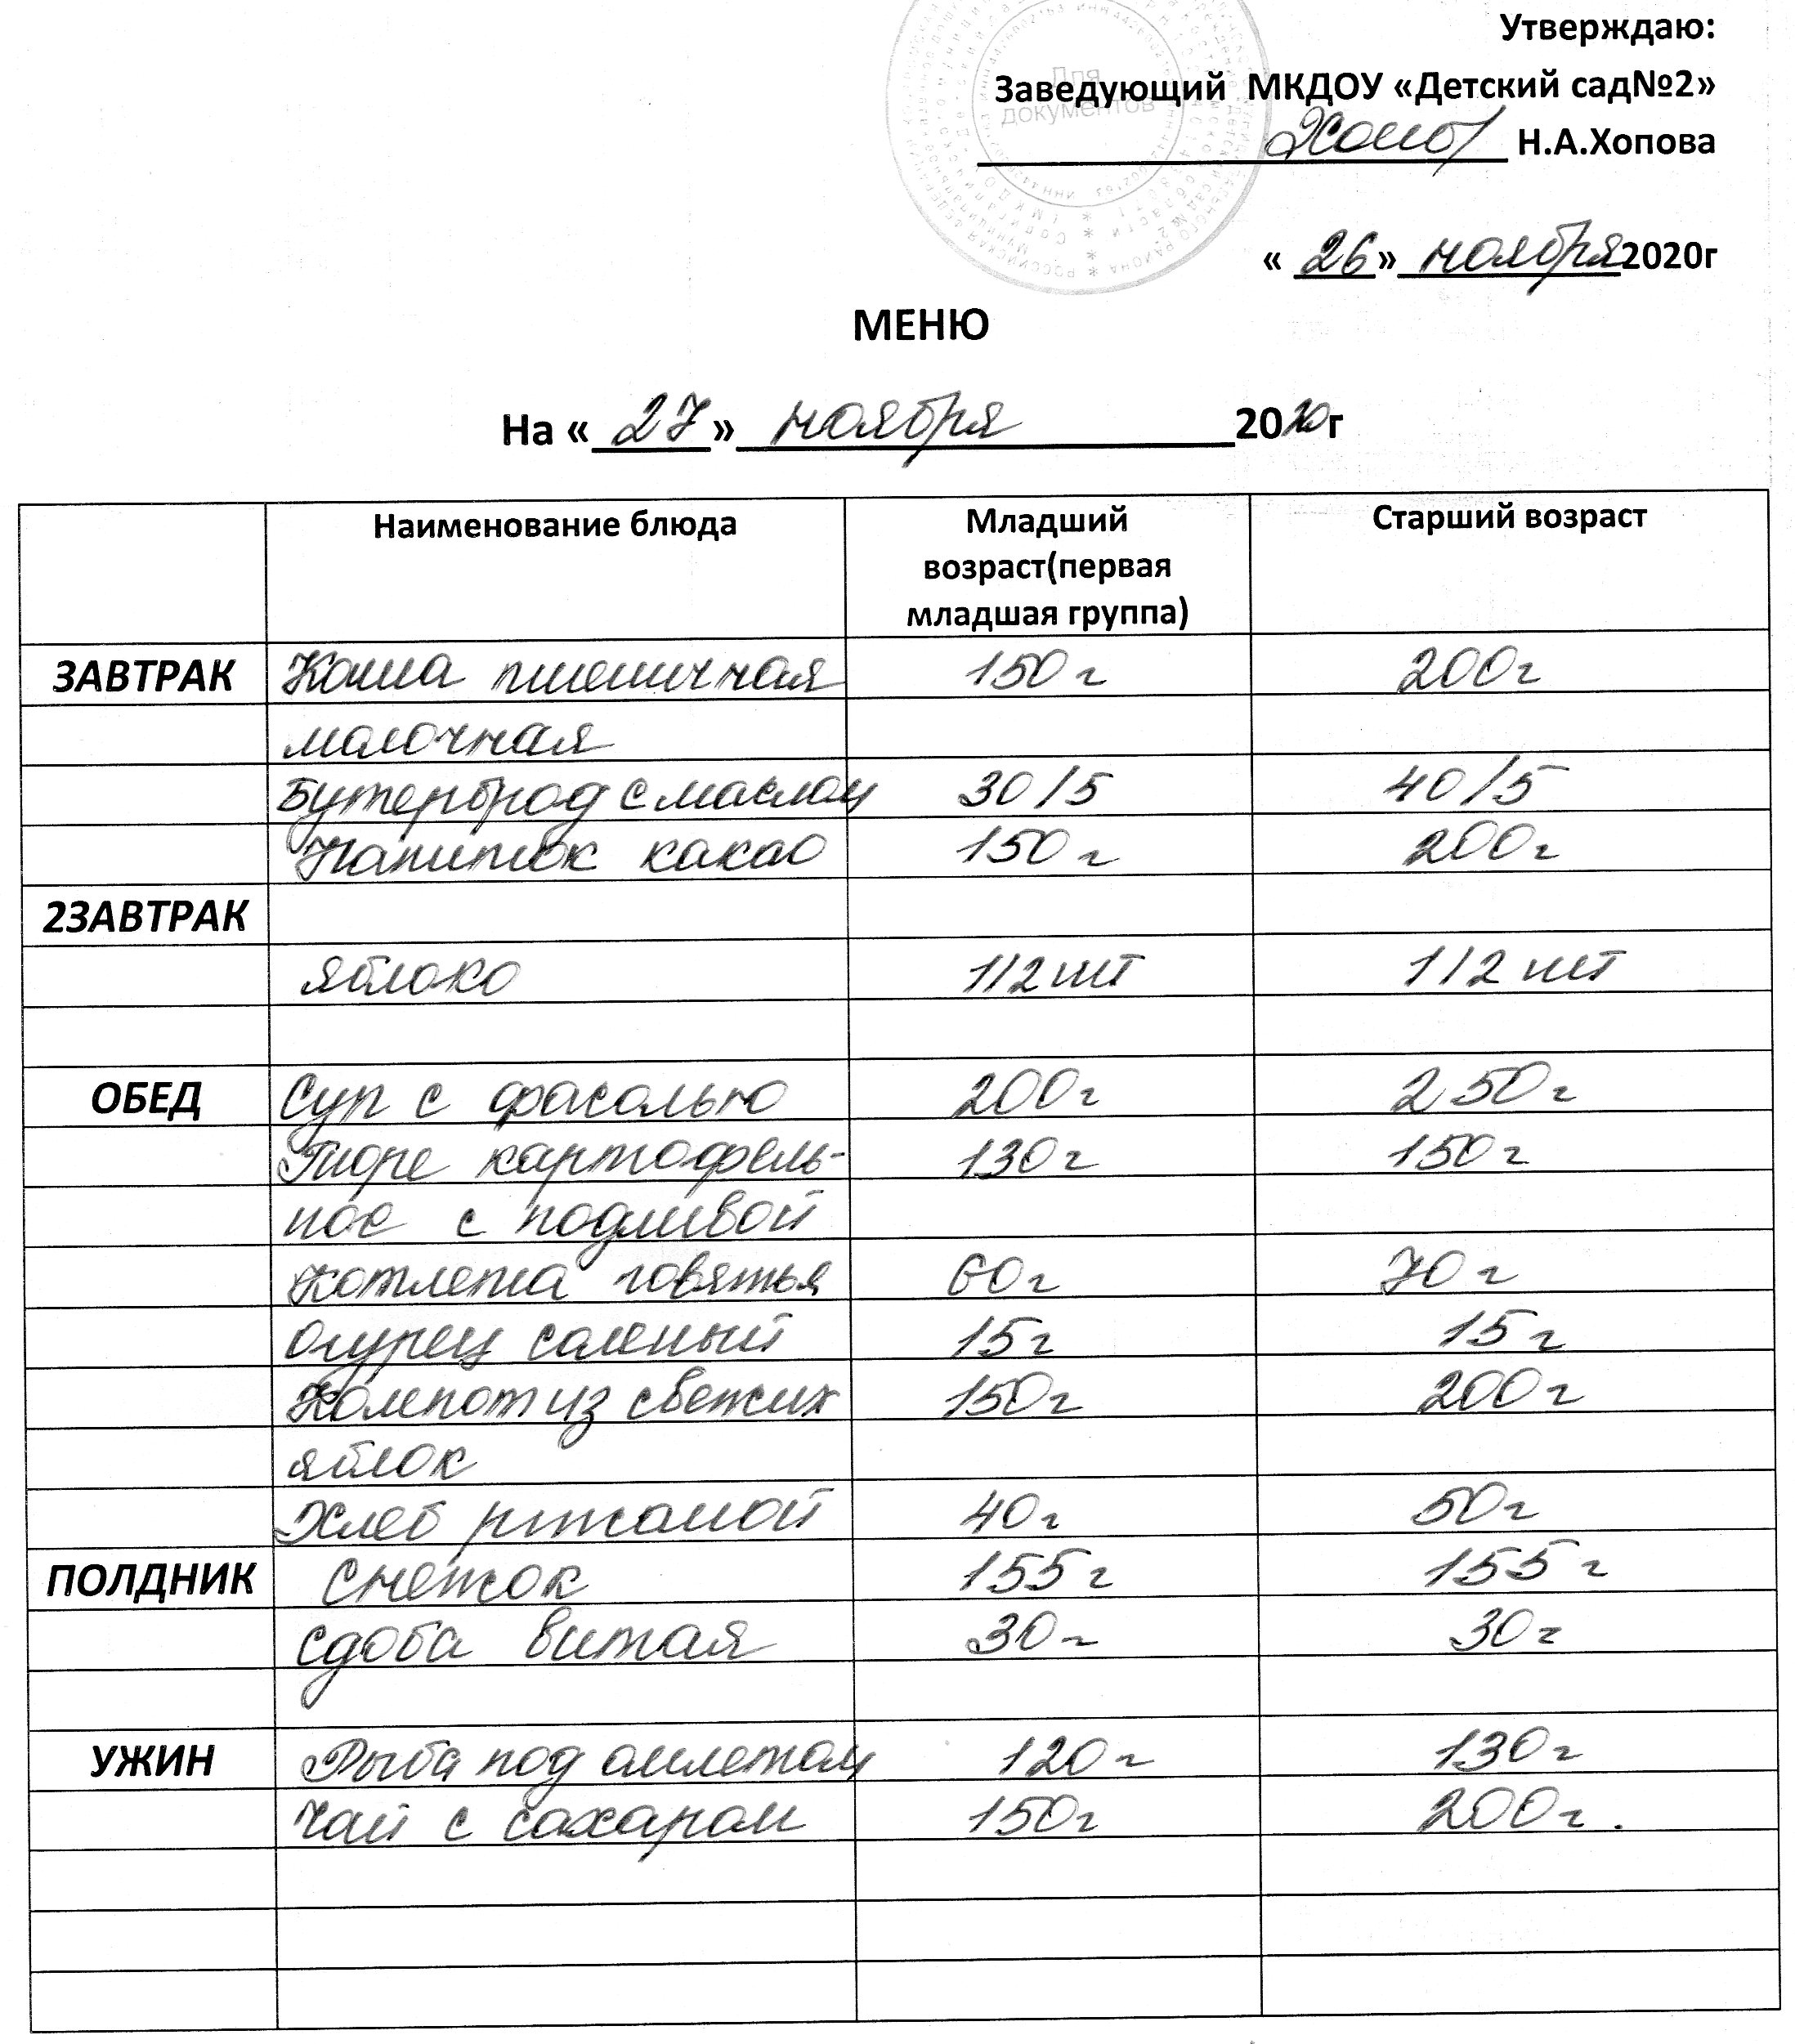 Утверждаю:
Заведующий МКДОУ «Детский сад№2»
Н.А.Хопова
Для
документов
« 26 » ноября 2020г
МЕНЮ
На « 27 » ноября 2020г
Наименование блюда Младший возраст(первая младшая группа) Старший возраст
ЗАВТРАК Каша пшеничная 150г 200г
молочная
Бутерброд с маслом 30/5 40/5
Напиток какао 150г 200г
2ЗАВТРАК
яблоко 1/2 шт 1/2 шт
ОБЕД Суп с фасолью 200г 250г
Пюре картофель- 130г 150г
ное с подливой
Котлета говяжья 60г 70г
Огурец соленый 15г 15г
Компот из свежих 150г 200г
яблок
Хлеб ржаной 40г 50г
ПОЛДНИК Снежок 155г 155г
сдоба витая 30г 30г
УЖИН Рыба под омлетом 120г 130г
Чай с сахаром 150г 200г.